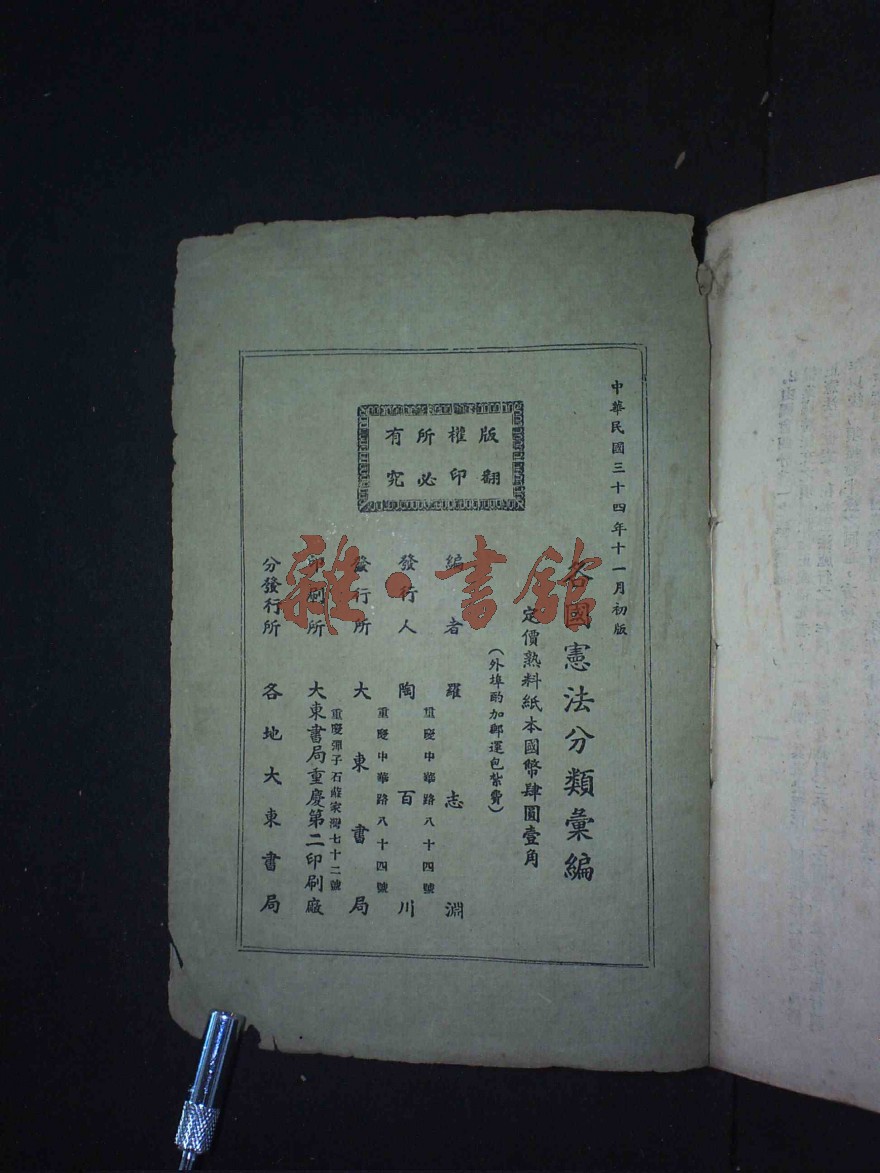 中華民國三十四年十一月初版
各國憲法分類彙編
定價熟料紙本國幣肆圓壹角
(外埠酌加郵運包紮費)
版權所有
翻印必究
編者 羅志淵
重慶中華路八十四號
發行人 陶百川
重慶中華路八十四號
發行所 大東書局
重慶彈子石蔣家灣七十二號
印刷所 大東書局重慶第二印刷廠
分發行所 各地大東書局
雜·書館